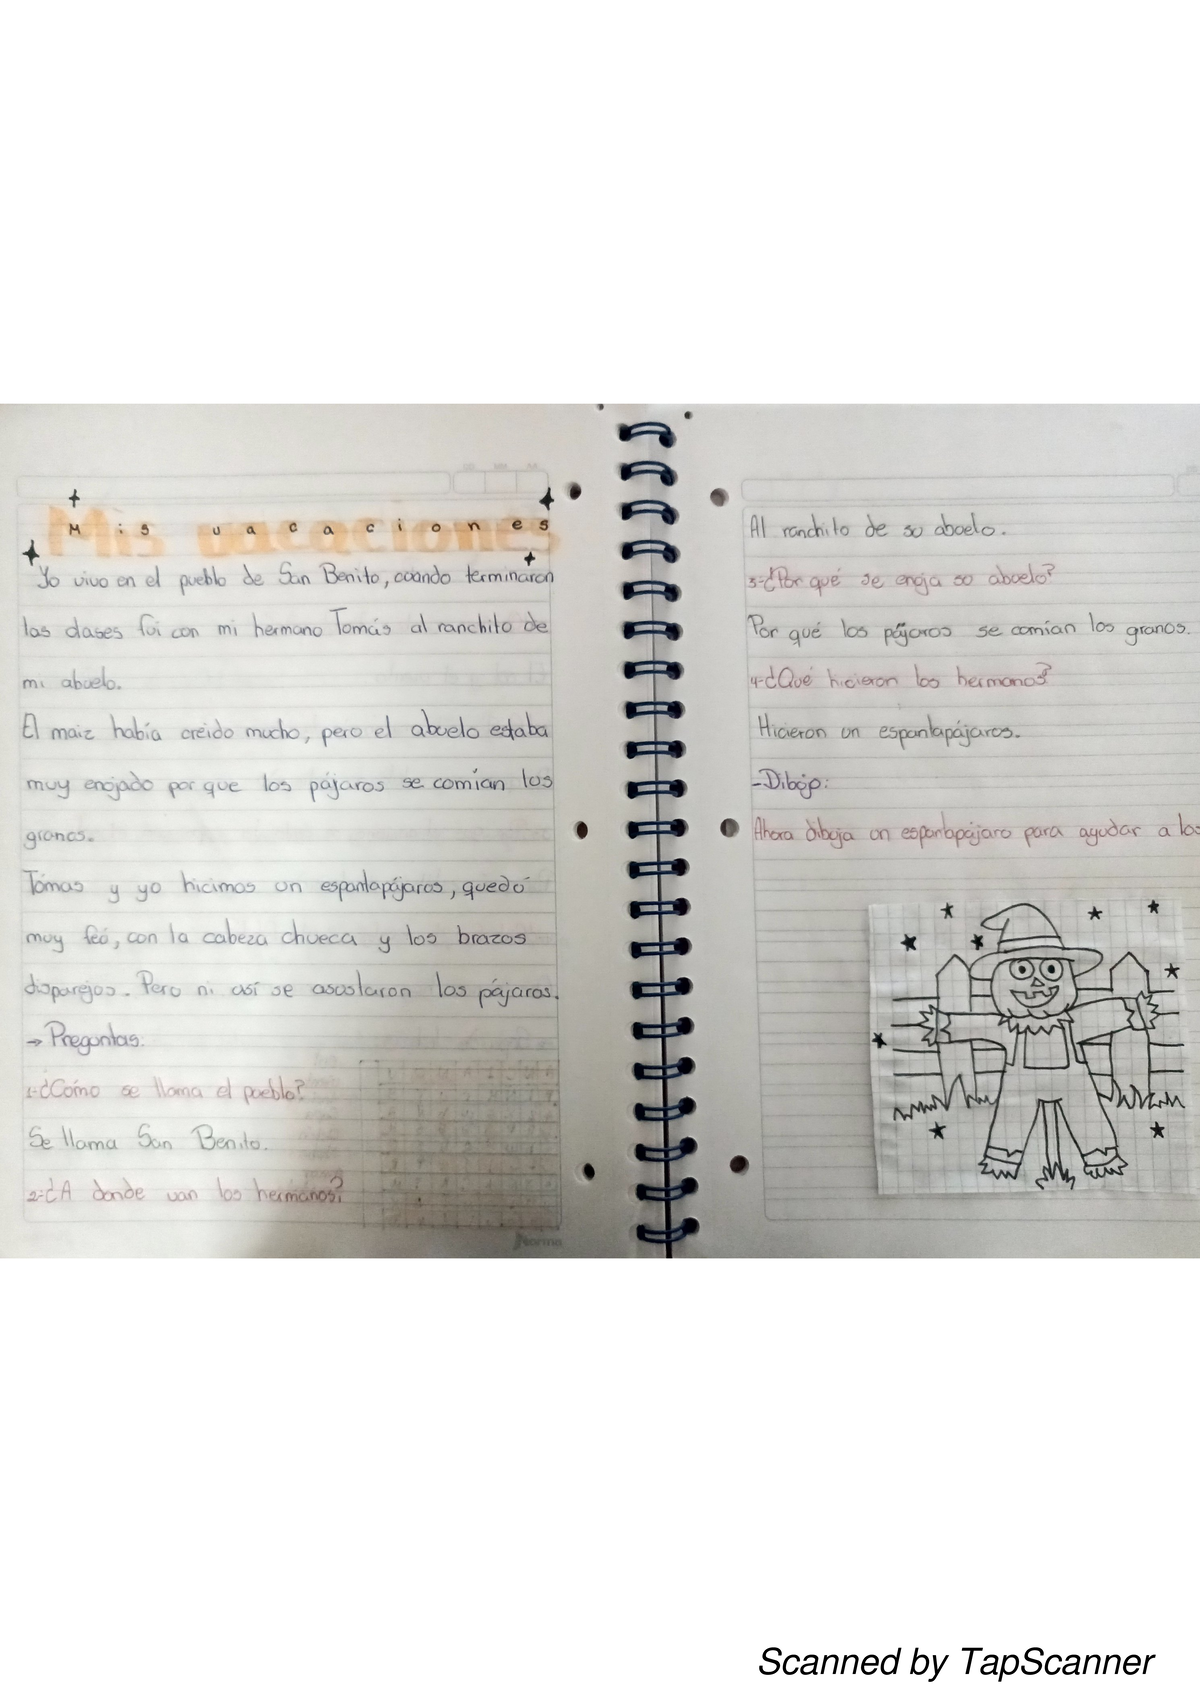 Mis vacaciones
Yo vivo en el pueblo de San Benito, cuando terminaron
las clases fui con mi hermano Tomás al ranchito de
mi abuelo.
El maiz había creido mucho, pero el abuelo estaba
muy enojado por que los pájaros se comían los
granos.
Tómas y yo hicimos un espantapájaros, quedó
muy feó, con la cabeza chueca y los brazos
disparejos. Pero ni así se asustaron los pájaros.
→ Preguntas:
1-¿Cómo se llama el pueblo?
Se llama San Benito.
2-¿A donde van los hermanos?
Norma
Al ranchito de su abuelo.
3-¿Por qué se enoja su abuelo?
Por qué los pájaros se comían los granos.
4-¿Qué hicieron los hermanos?
Hicieron un espantapájaros.
-Dibujo:
Ahora dibuja un espantapájaro para ayudar a los
Scanned by TapScanner